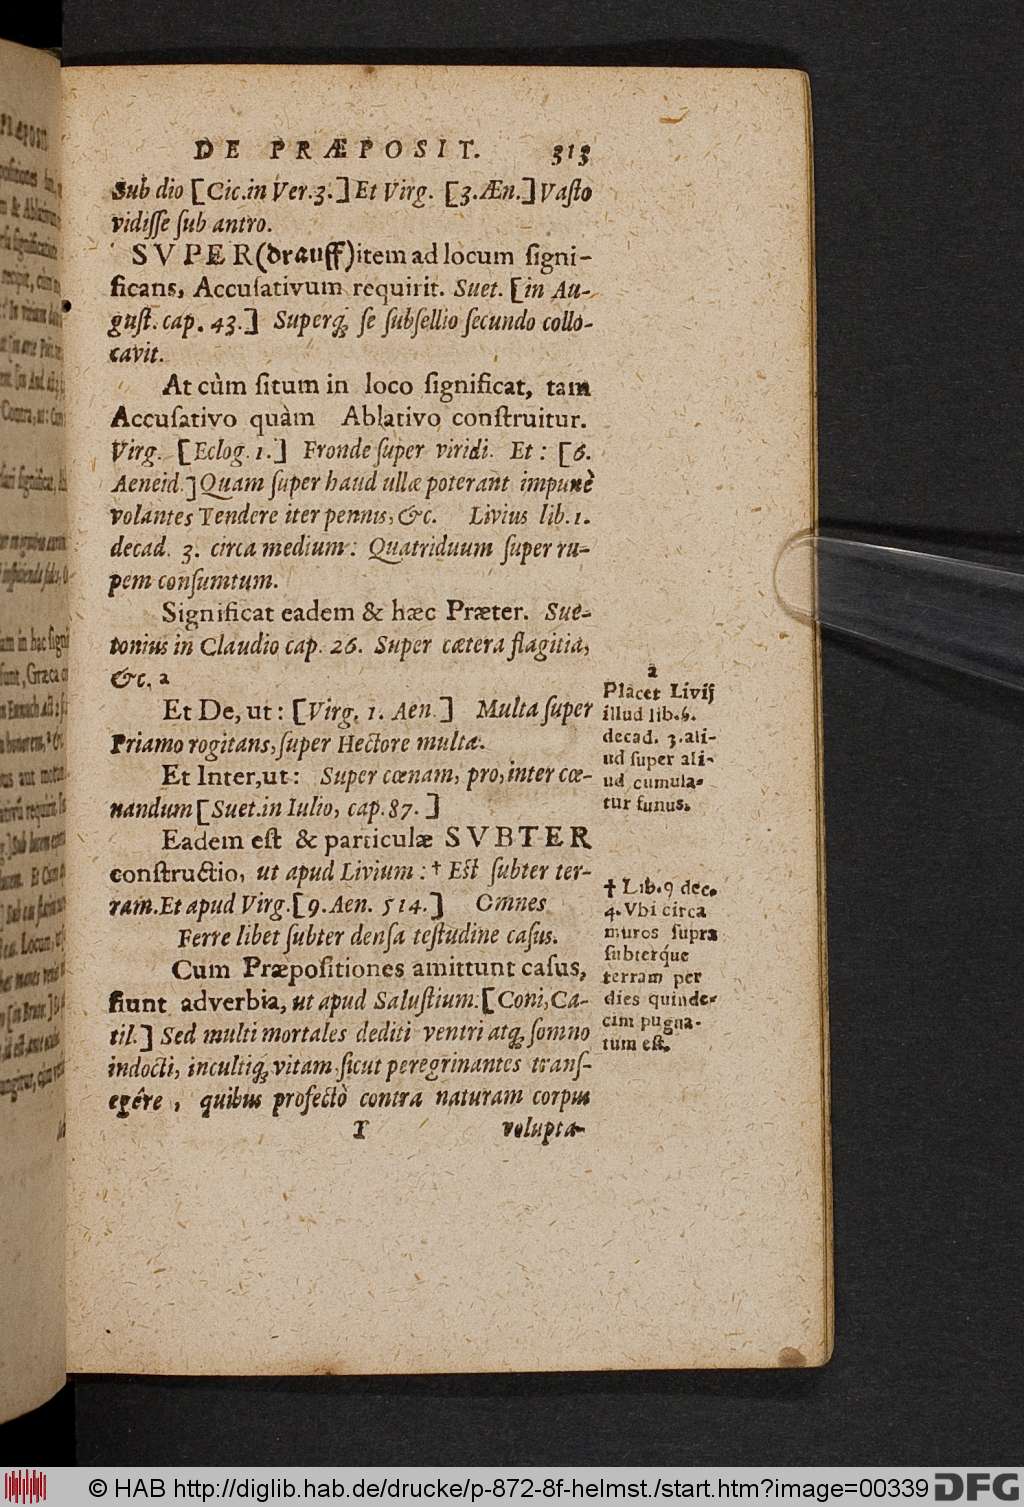 DE PRÆPOSIT. 313
Sub dio [Cic.in Ver.3.] Et Virg. [3.Æn.] Vaſto
vidiſſe ſub antro.
SVPER (drauff) item ad locum ſigni-
ficans, Accuſativum requirit. Suet. [in Au-
guſt. cap. 43.] Superq́; ſe ſubſellio ſecundo collo-
cavit.
At cùm ſitum in loco ſignificat, tam
Accuſativo quàm Ablativo conſtruitur.
Virg. [Eclog. 1.] Fronde ſuper viridi. Et : [6.
Aeneid.] Quam ſuper haud ullæ poterant impunè
volantes Tendere iter pennis, &c. Livius lib. 1.
decad. 3. circa medium: Quatriduum ſuper ru-
pem conſumtum.
Significat eadem & hæc Præter. Sue-
tonius in Claudio cap. 26. Super cætera flagitia,
&c. a
Et De, ut : [Virg. 1. Aen.] Multa ſuper
Priamo rogitans, ſuper Hectore multa.
Et Inter, ut : Super cœnam, pro, inter cœ-
nandum [Suet.in Iulio, cap. 87.]
Eadem eſt & particulæ SVBTER
conſtructio, ut apud Livium : † Eſt ſubter ter-
ram. Et apud Virg. [9. Aen. 514.] Omnes
Ferre libet ſubter denſa teſtudine caſus.
Cum Præpoſitiones amittunt caſus,
fiunt adverbia, ut apud Saluſtium. [Coni, Ca-
til.] Sed multi mortales dediti ventri atq́; ſomno
indocti, incultiq́; vitam ſicut peregrinantes tranſ-
egêre, quibus profectò contra naturam corpus
T volupta-
a
Placet Livij
illud lib. 6.
decad. 3. ali-
ud ſuper ali-
ud cumula-
tur funus.
† Lib. 9 dec.
4. Vbi circa
muros ſupra
ſubterq́ue
terram per
dies quinde-
cim pugna-
tum eſt.
© HAB http://diglib.hab.de/drucke/p-872-8f-helmst./start.htm?image=00339 DFG